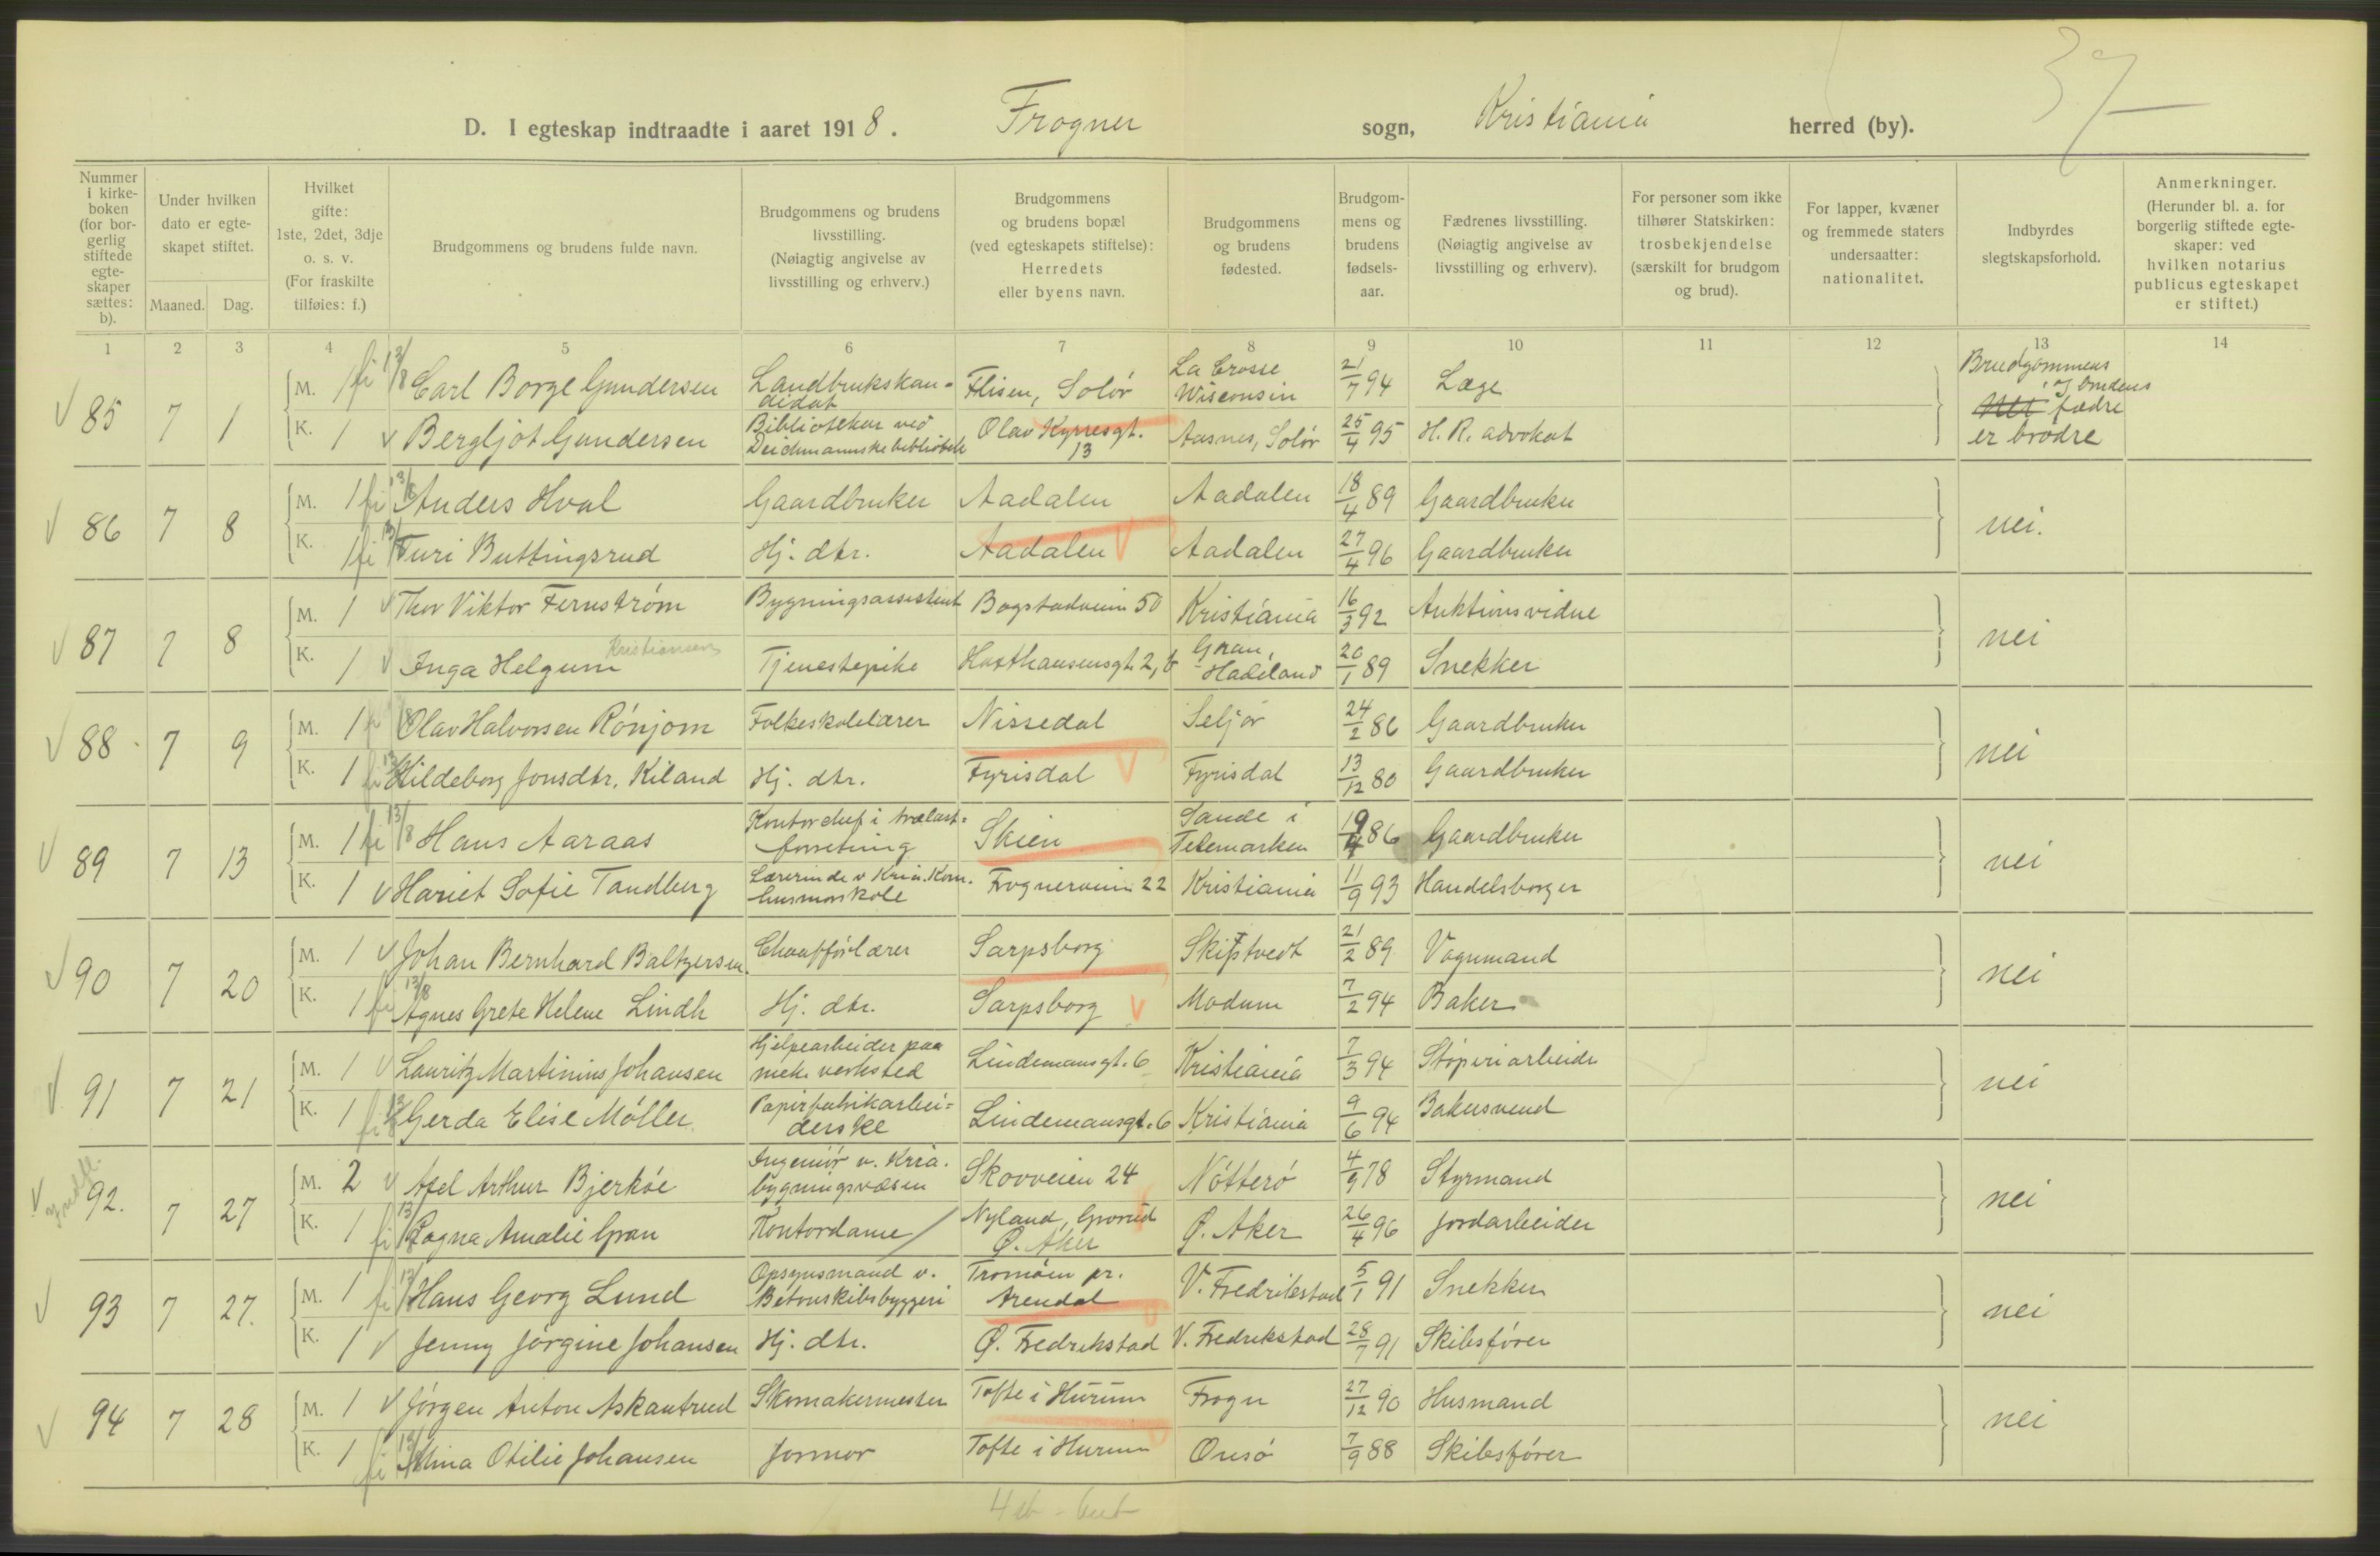 37
D. I egteskap indtraadte i aaret 1918. Frogner sogn, Kristiania herred (by).
Nummer i kirke-boken (for bor-gerlig stiftede egte-skaper sættes: b).
Under hvilken dato er egte-skapet stiftet.
Maaned. Dag.
Hvilket gifte: 1ste, 2det, 3dje o. s. v. (For fraskilte tilføies: f.)
Brudgommens og brudens fulde navn.
Brudgommens og brudens livsstilling. (Nøiagtig angivelse av livsstilling og erhverv.)
Brudgommens og brudens bopæl (ved egteskapets stiftelse): Herredets eller byens navn.
Brudgommens og brudens fødested.
Brudgom-mens og brudens fødsels-aar.
Fædrenes livsstilling. (Nøiagtig angivelse av livsstilling og erhverv).
For personer som ikke tilhører Statskirken: trosbekjendelse (særskilt for brudgom og brud).
For lapper, kvæner og fremmede staters undersaatter: nationalitet.
Indbyrdes slegtskapsforhold.
Anmerkninger. (Herunder bl. a. for borgerlig stiftede egte-skaper: ved hvilken notarius publicus egteskapet er stiftet.)
1 2 3 4 5 6 7 8 9 10 11 12 13 14
85 7 1 M. 1 fi 13/8 Carl Borge Gundersen Landbrukskan=didat Flisen, Solør La Crosse Wisconsin 21/7 94 Læge Brudgommens og brudens fædre er brødre
K. 1 v Bergljot Gundersen Bibliotekar ved Deichmannske bibliotek Olav Kyrresgt. 13 Aasnes, Solør 25/4 95 H. R. advokat
86 7 8 M. 1 fi 13/8 Anders Hval Gaardbruker Aadalen Aadalen 18/4 89 Gaardbruker nei.
K. 1 fi 13/8 Turi Buttingsrud Hj. dtr. Aadalen Aadalen 27/4 96 Gaardbruker
87 7 8 M. 1 v Thor Viktor Fernstrøm Bygningsassistent Bogstadveien 50 Kristiania 16/3 92 Auktionsvidne nei
K. 1 v Inga Helgum Kristiansen Tjenestepike Haxthausensgt. 2, b Gran, Hadeland 20/1 89 Snekker
88 7 9 M. 1 fi Olav Halvorsen Rónjom Folkeskolelærer Nissedal Seljor 24/2 86 Gaardbruker nei
K. 1 fi 13/8 Hildeborg Jonsdtr. Kiland Hj. dtr. Fyrisdal Fyrisdal 13/12 80 Gaardbruker
89 7 13 M. 1 fi 13/8 Hans Aaraas Kontorchef i trælast=forretning Skien Sande i Telemarken 19/4 86 Gaardbruker nei
K. 1 v Hariet Sofie Tandberg Lærerinde v Kria. Kom. husmorskole Frognerveien 22 Kristiania 11/9 93 Handelsborger
90 7 20 M. 1 v Johan Bernhard Baltzersen Chaufførlærer Sarpsborg Skiptvedt 21/2 89 Vognmand nei
K. 1 fi 13/8 Agnes Grete Helene Lindh Hj. dtr. Sarpsborg Modum 7/2 94 Baker
91 7 21 M. 1 v Lauritz Martinius Johansen Hjelpearbeider paa mek. verksted Lindemansgt. 6 Kristiania 7/3 94 Støperiarbeider nei
K. 1 fi 13/8 Gerda Elise Møller Papirfabrikarbei=derske Lindemansgt. 6 Kristiania 9/6 94 Bakersvend
92. 7 27 M. 2 v Axel Arthur Bjerkøe Ingeniør v. Kria. bygningsvæsen Skovveien 24 Nøtterø 4/9 78 Styrmand nei
K. 1 fi 13/8 Ragna Amalie Gran Kontordame Nyland, Grorud Ø. Aker Ø. Aker 26/4 96 Jordarbeider
93 7 27. M. 1 fi 13/8 Hans Georg Lund Opsynsmand v. Betonskibsbyggeri Tromøen pr. Arendal V. Fredrikstad 5/1 91 Snekker nei
K. 1 v Jenny Jørgine Johansen Hj. dtr. Ø. Fredrikstad V. Fredrikstad 28/7 91 Skibsfører
94 7 28 M. 1 v Jørgen Anton Askautrud Skomakermester Tofte i Hurum Frogn 27/12 90 Husmand nei
K. 1 fi 13/8 Alina Otilie Johansen Jormor Tofte i Hurum Onsø 7/9 88 Skibsfører